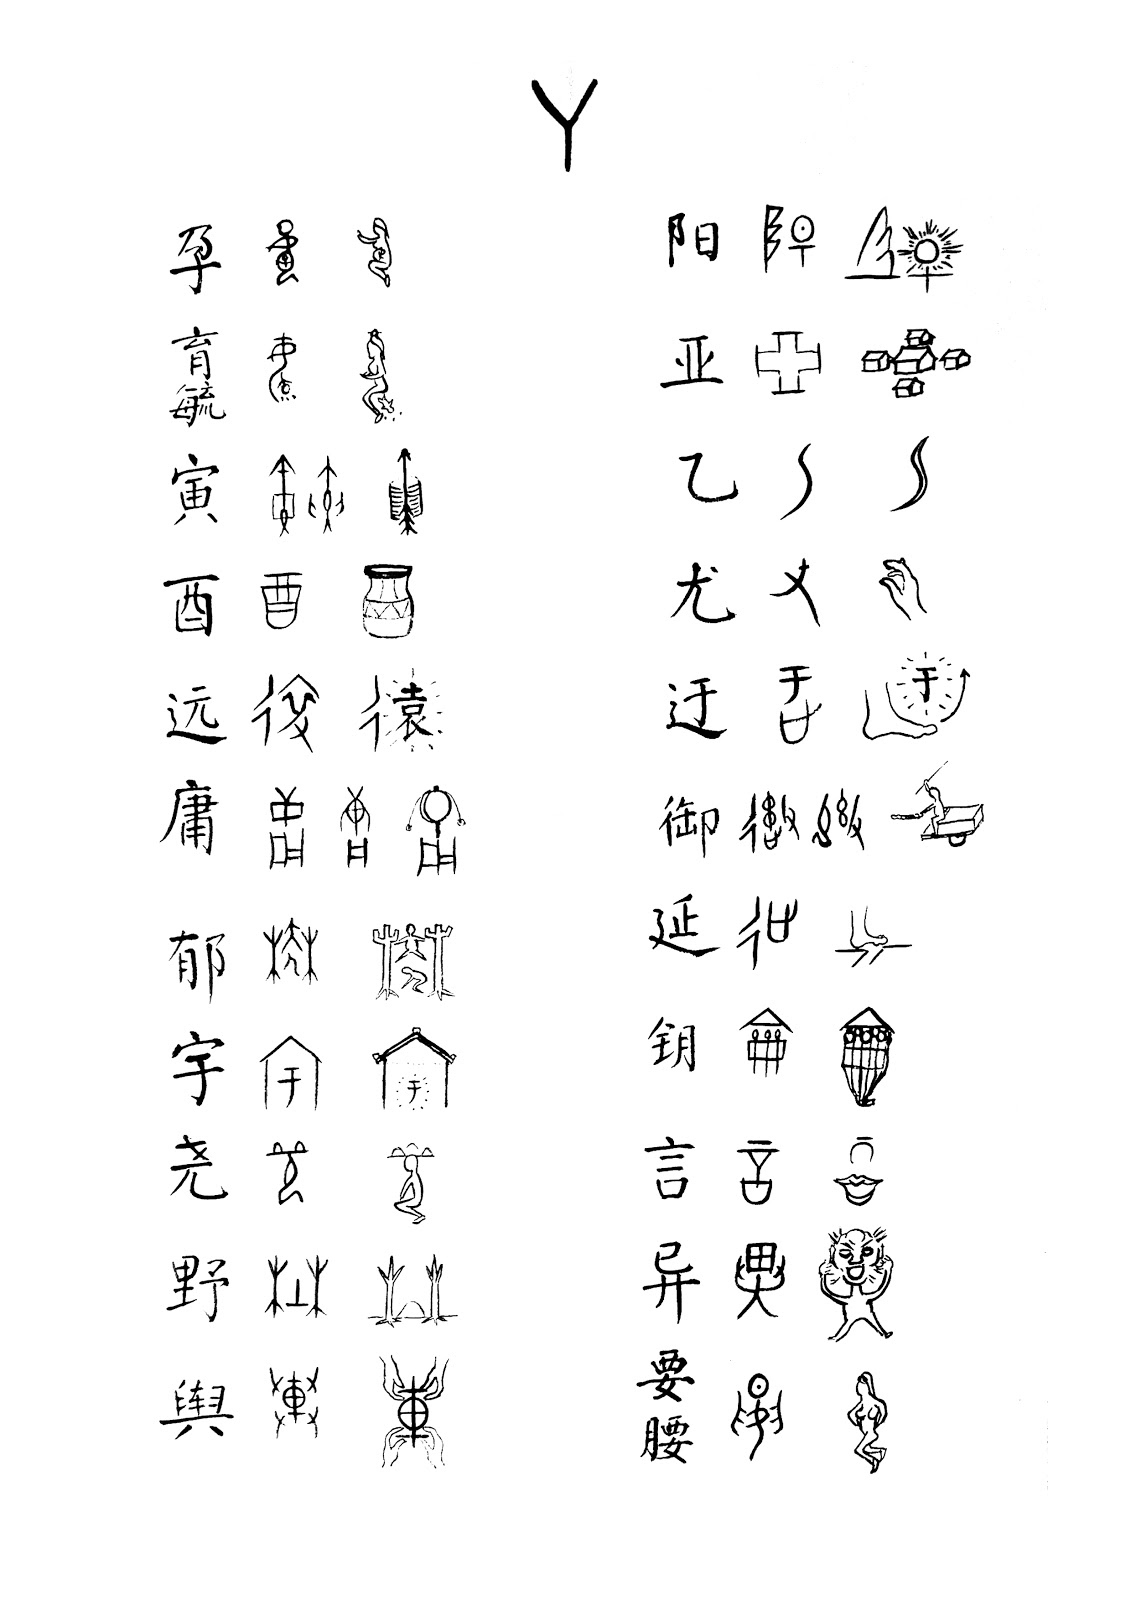 Y
孕
育
毓
寅
酉
远
庸
郁
宇
尧
野
舆
阳
亚
乙
尤
迂
御
延
钥
言
异
要
腰